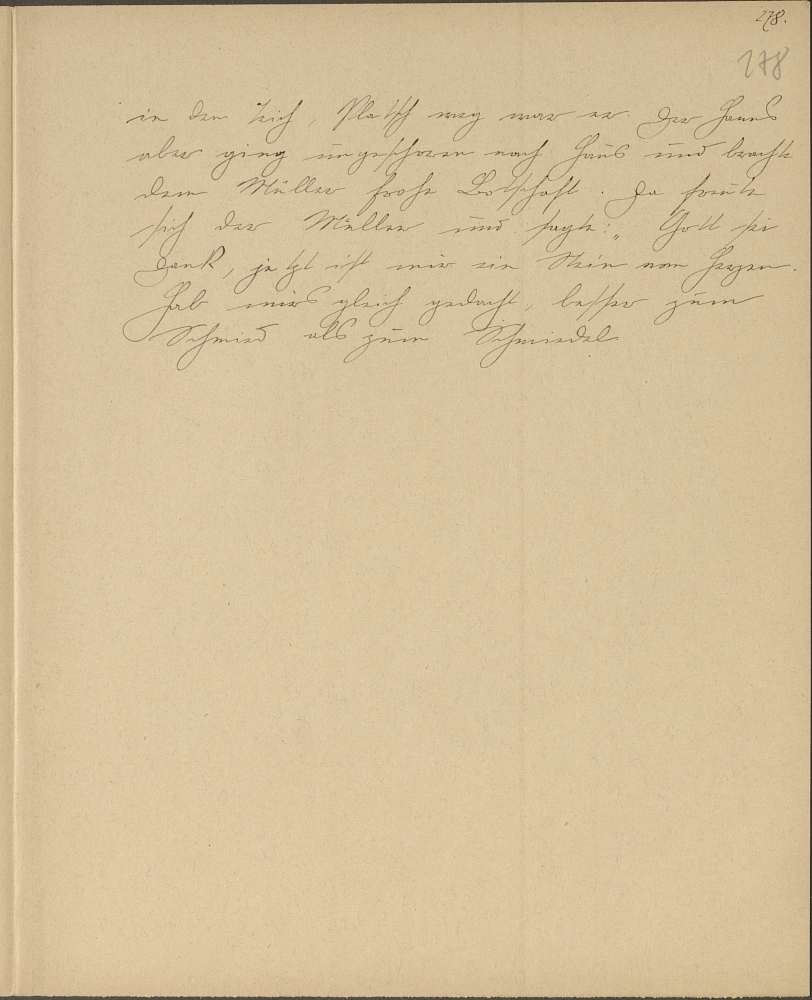 278.
178
in den Teich, Platsch weg war er. Der Hans
aber ging ungeschoren nach Haus und brachte
dem Müller frohe Botschaft. Da freute
sich der Müller und sagte: „Gott sei
Dank, jetzt ist mir ein Stein vom Herzen.
Hab mirs gleich gedacht, besser zum
Schmied als zum Schmiedel